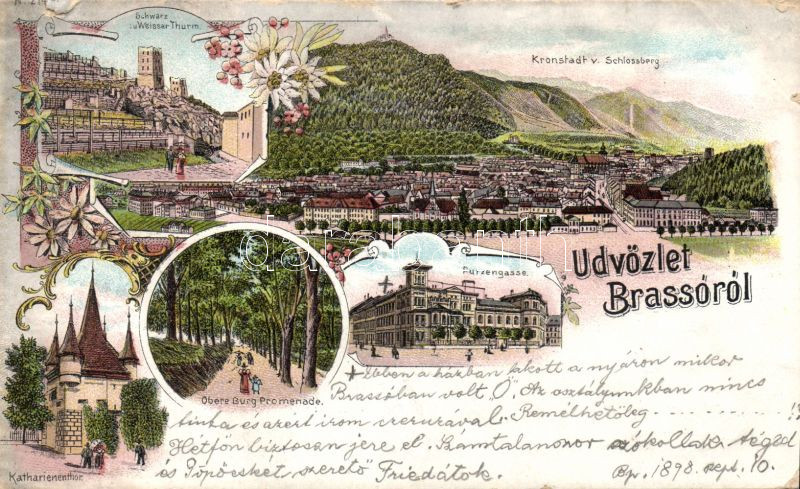 Schwarz
u. Weisser Thurm.
Kronstadt v. Schlossberg
Purzengasse.
Udvözlet
Brassóról
Obere Burg Promenade.
Katharienenthor.
darabanth
+ Ebben a házban lakott a nyáron mikor
Brassóban volt, Ő. Az osztályunkban nincs
tinta és azért irom czeruzával. Remélhetőleg
Hétfőn biztosan jere el. Számtalanszor csókollak téged
és Pöpöcskét szerető Friedátok.
Bp. 1898. sept. 10.